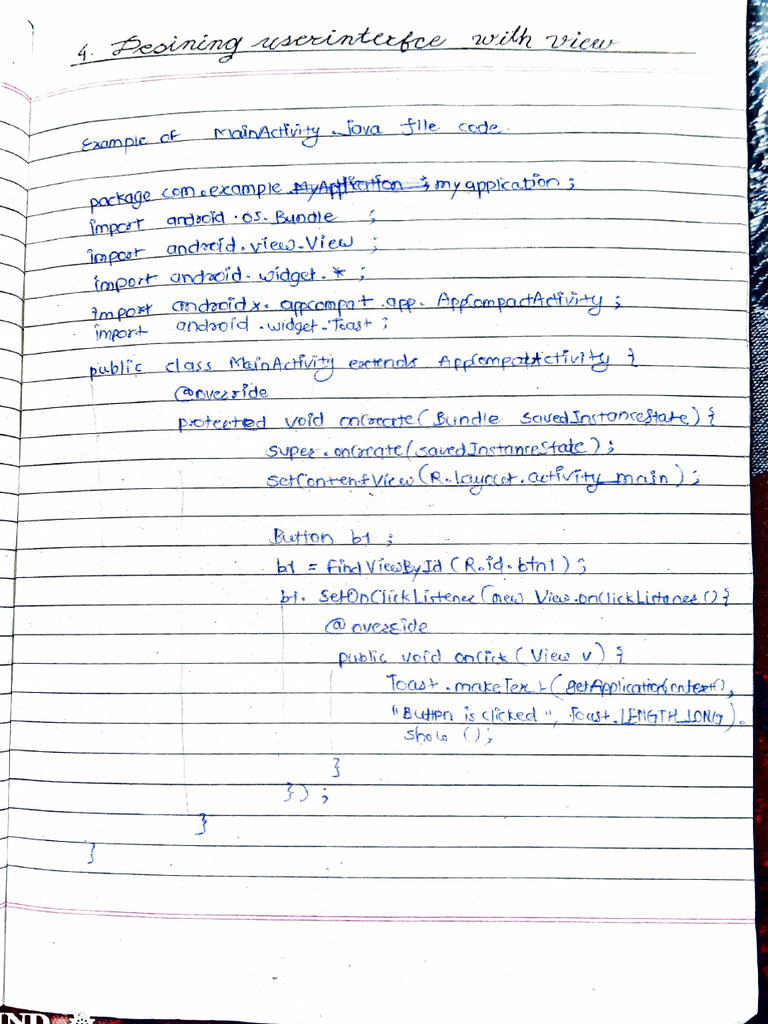 4. Desining userinterfce with view
Example of MainActivity.java file code.
package com.example.MyApplication ; myapplication;
import android.os.Bundle ;
import android.view.View ;
import android.widget.*;
import androidx.appcompat.app.AppCompactActivity ;
import android.widget.Toast;
public class MainActivity extends AppCompatActivity {
@override
protected void onCreate(Bundle savedInstanceState) {
super.onCreate(savedInstanceState);
setContentView(R.layout.activity_main);
Button b1 ;
b1 = findViewById(R.id.btn1);
b1.setOnClickListener(new View.onClickListener(){
@override
public void onClick(View v) {
Toast.makeText(getApplicationContext(),
"Button is clicked", Toast.LENGTH_LONG).
show ();
}
});
}
}